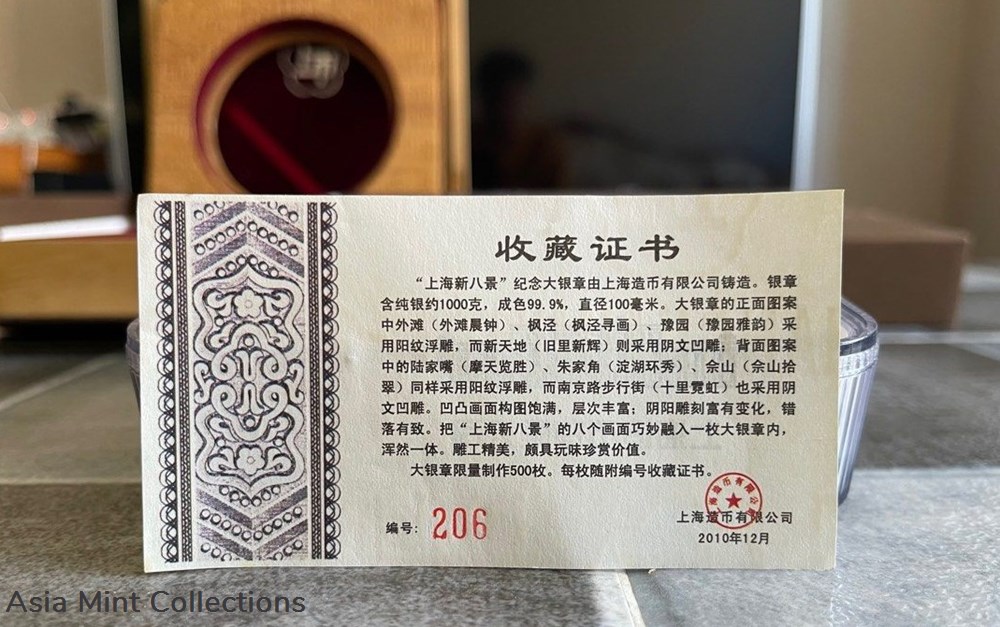 收藏证书
“上海新八景”纪念大银章由上海造币有限公司铸造。银章
含纯银约1000克，成色99.9%，直径100毫米。大银章的正面图案
中外滩（外滩晨钟）、枫泾（枫泾寻画）、豫园（豫园雅韵）采
用阳纹浮雕，而新天地（旧里新辉）则采用阴文凹雕；背面图案
中的陆家嘴（摩天览胜）、朱家角（淀湖环秀）、佘山（佘山拾
翠）同样采用阳纹浮雕，而南京路步行街（十里霓虹）也采用阴
文凹雕。凹凸画面构图饱满，层次丰富；阴阳雕刻富有变化，错
落有致。把“上海新八景”的八个画面巧妙融入一枚大银章内，
浑然一体。雕工精美，颇具玩味珍赏价值。
大银章限量制作500枚。每枚随附编号收藏证书。
编号: 206
上海造币有限公司
2010年12月
Asia Mint Collections